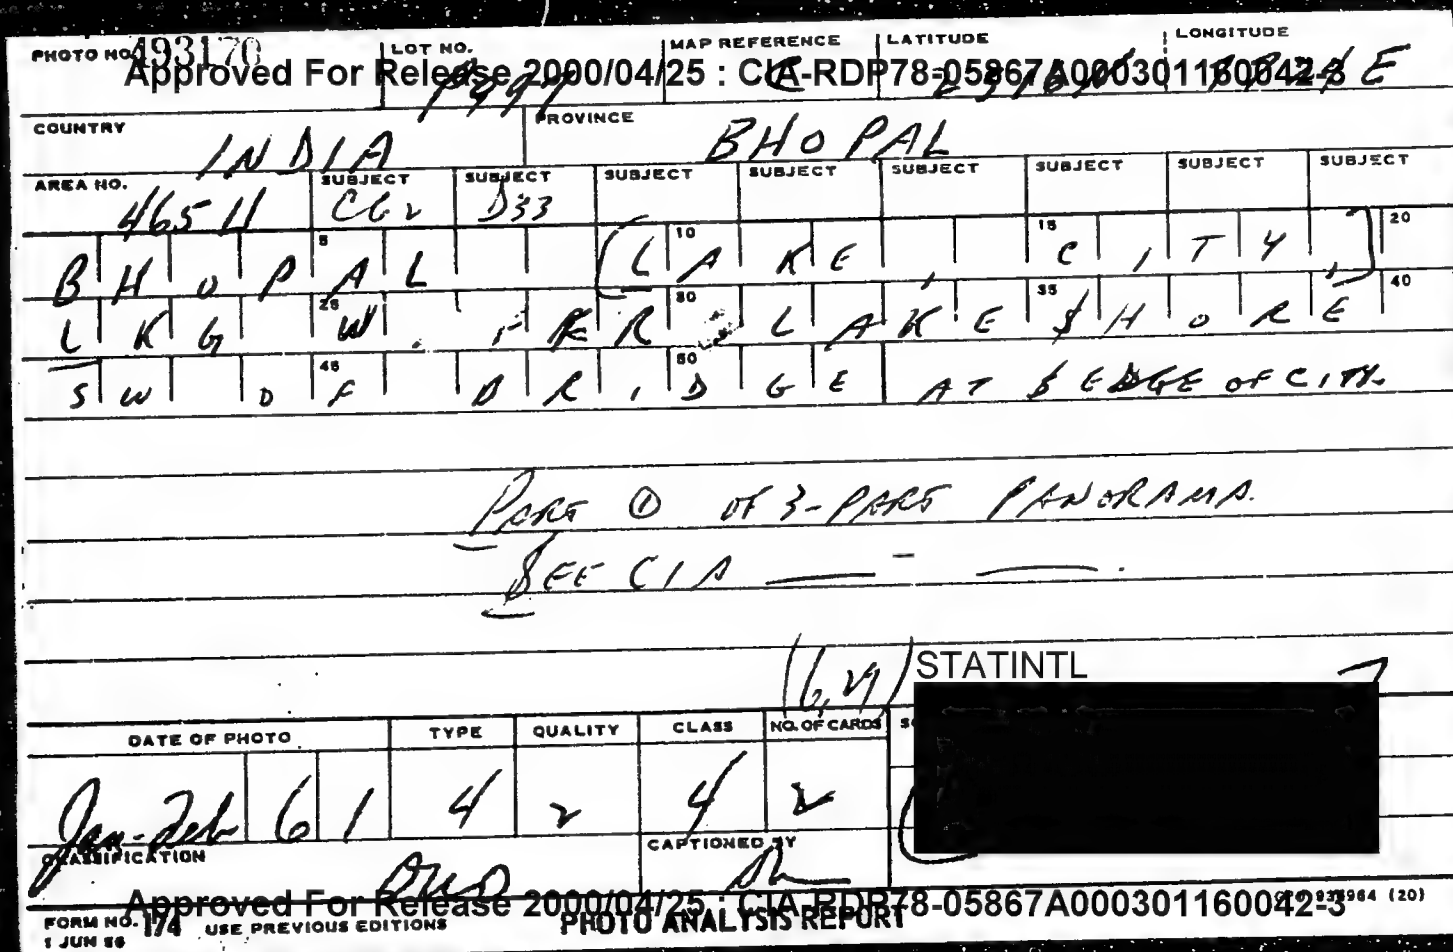 PHOTO NO. 493170 LOT NO. MAP REFERENCE LATITUDE LONGITUDE
Approved For Release 2000/04/25 : CIA-RDP78-05867A000301160042-3
COUNTRY INDIA PROVINCE BHOPAL
AREA NO. SUBJECT SUBJECT SUBJECT SUBJECT SUBJECT SUBJECT SUBJECT SUBJECT
465 D33
5 10 15 20
BHOPAL (LAKE, CITY,)
25 30 35 40
LKG W. FR LAKE SHORE
45 50
SW OF BRIDGE AT S EDGE OF CITY.
PART ① OF 3-PART PANORAMA.
SEE CIA
STATINTL
DATE OF PHOTO TYPE QUALITY CLASS NO. OF CARDS
Jan-Feb 61 4 2 4 2
CLASSIFICATION CAPTIONED BY
OUO
Approved For Release 2000/04/25 : CIA-RDP78-05867A000301160042-3
FORM NO. 174 USE PREVIOUS EDITIONS PHOTO ANALYSIS REPORT (20)
1 JUN 56